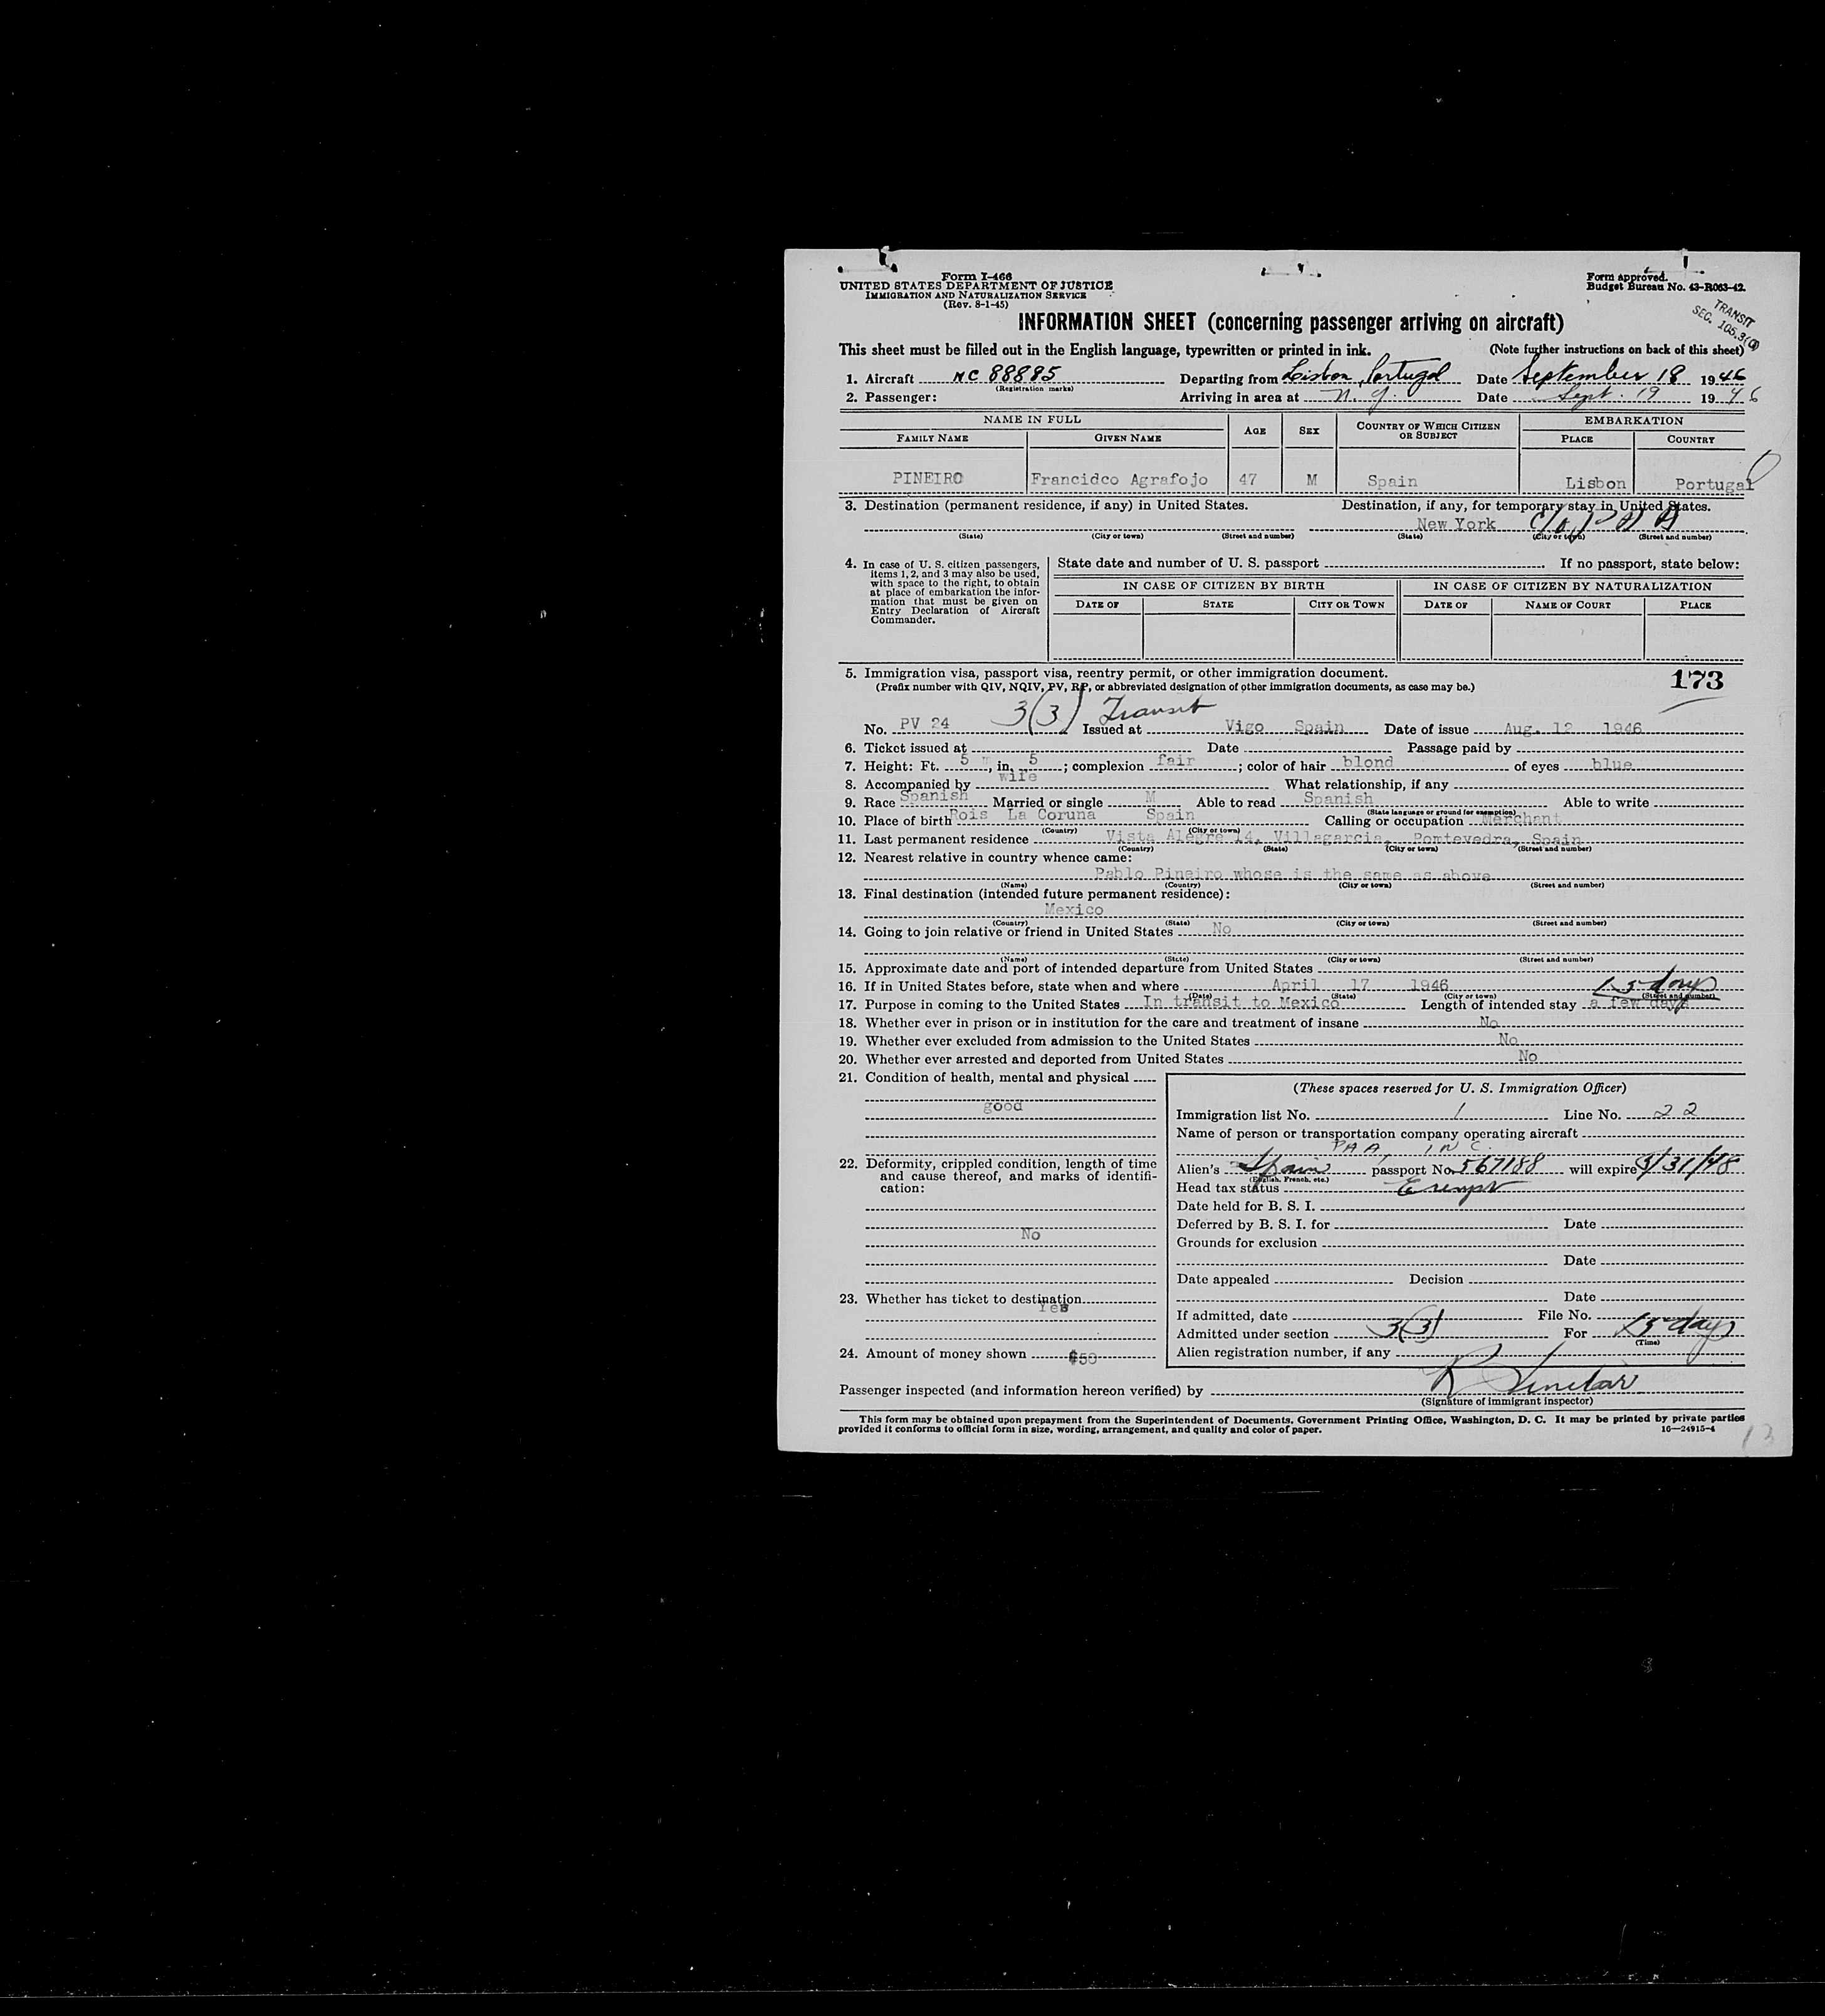 Form I-466
UNITED STATES DEPARTMENT OF JUSTICE
IMMIGRATION AND NATURALIZATION SERVICE
(Rev. 8-1-45)
Form approved.
Budget Bureau No. 43-R063-42.
TRANSIT
SEC. 105.3(a)
INFORMATION SHEET (concerning passenger arriving on aircraft)
This sheet must be filled out in the English language, typewritten or printed in ink. (Note further instructions on back of this sheet)
1. Aircraft NC 88885 Departing from Lisbon, Portugal Date September 18 1946
(Registration marks)
2. Passenger: Arriving in area at N. Y. Date Sept. 19 1946
NAME IN FULL AGE SEX COUNTRY OF WHICH CITIZEN OR SUBJECT EMBARKATION
FAMILY NAME GIVEN NAME PLACE COUNTRY
PINEIRO Francidco Agrafojo 47 M Spain Lisbon Portugal
3. Destination (permanent residence, if any) in United States. Destination, if any, for temporary stay in United States.
New York c/o PAA
(State) (City or town) (Street and number) (State) (City or town) (Street and number)
4. In case of U. S. citizen passengers, items 1, 2, and 3 may also be used, with space to the right, to obtain at place of embarkation the information that must be given on Entry Declaration of Aircraft Commander.
State date and number of U. S. passport If no passport, state below:
IN CASE OF CITIZEN BY BIRTH IN CASE OF CITIZEN BY NATURALIZATION
DATE OF STATE CITY OR TOWN DATE OF NAME OF COURT PLACE
5. Immigration visa, passport visa, reentry permit, or other immigration document.
(Prefix number with QIV, NQIV, PV, RP, or abbreviated designation of other immigration documents, as case may be.)
173
3(3) Transit
No. PV 24 Issued at Vigo Spain Date of issue Aug. 12 1946
6. Ticket issued at Date Passage paid by
7. Height: Ft. 5, in. 5; complexion fair; color of hair blond of eyes blue
8. Accompanied by wife What relationship, if any
9. Race Spanish Married or single M Able to read Spanish Able to write
(State language or ground for exemption)
10. Place of birth Rois La Coruna Spain Calling or occupation Merchant
(Country) (City or town)
11. Last permanent residence Vista Alegre 14, Villagarcia, Pomtevedra, Spain
(Country) (State) (City or town) (Street and number)
12. Nearest relative in country whence came:
Pablo Pineiro whose is the same as above
(Name) (Country) (City or town) (Street and number)
13. Final destination (intended future permanent residence):
Mexico
(Country) (State) (City or town) (Street and number)
14. Going to join relative or friend in United States No
(Name) (State) (City or town) (Street and number)
15. Approximate date and port of intended departure from United States
16. If in United States before, state when and where April 17 1946 15 days
(Date) (State) (City or town) (Street and number)
17. Purpose in coming to the United States In transit to Mexico Length of intended stay a few days
18. Whether ever in prison or in institution for the care and treatment of insane No
19. Whether ever excluded from admission to the United States No
20. Whether ever arrested and deported from United States No
21. Condition of health, mental and physical
good
22. Deformity, crippled condition, length of time and cause thereof, and marks of identification:
No
23. Whether has ticket to destination
Yes
24. Amount of money shown $50
(These spaces reserved for U. S. Immigration Officer)
Immigration list No. 1 Line No. 22
Name of person or transportation company operating aircraft
PAA, INC.
Alien's Spain passport No. 567188 will expire 3/31/48
(English, French, etc.)
Head tax status Exempt
Date held for B. S. I.
Deferred by B. S. I. for Date
Grounds for exclusion
Date
Date appealed Decision
Date
If admitted, date File No.
Admitted under section 3(3) For 15 days
(Time)
Alien registration number, if any
Passenger inspected (and information hereon verified) by
(Signature of immigrant inspector)
This form may be obtained upon prepayment from the Superintendent of Documents, Government Printing Office, Washington, D. C. It may be printed by private parties
provided it conforms to official form in size, wording, arrangement, and quality and color of paper. 16—24915-4
13